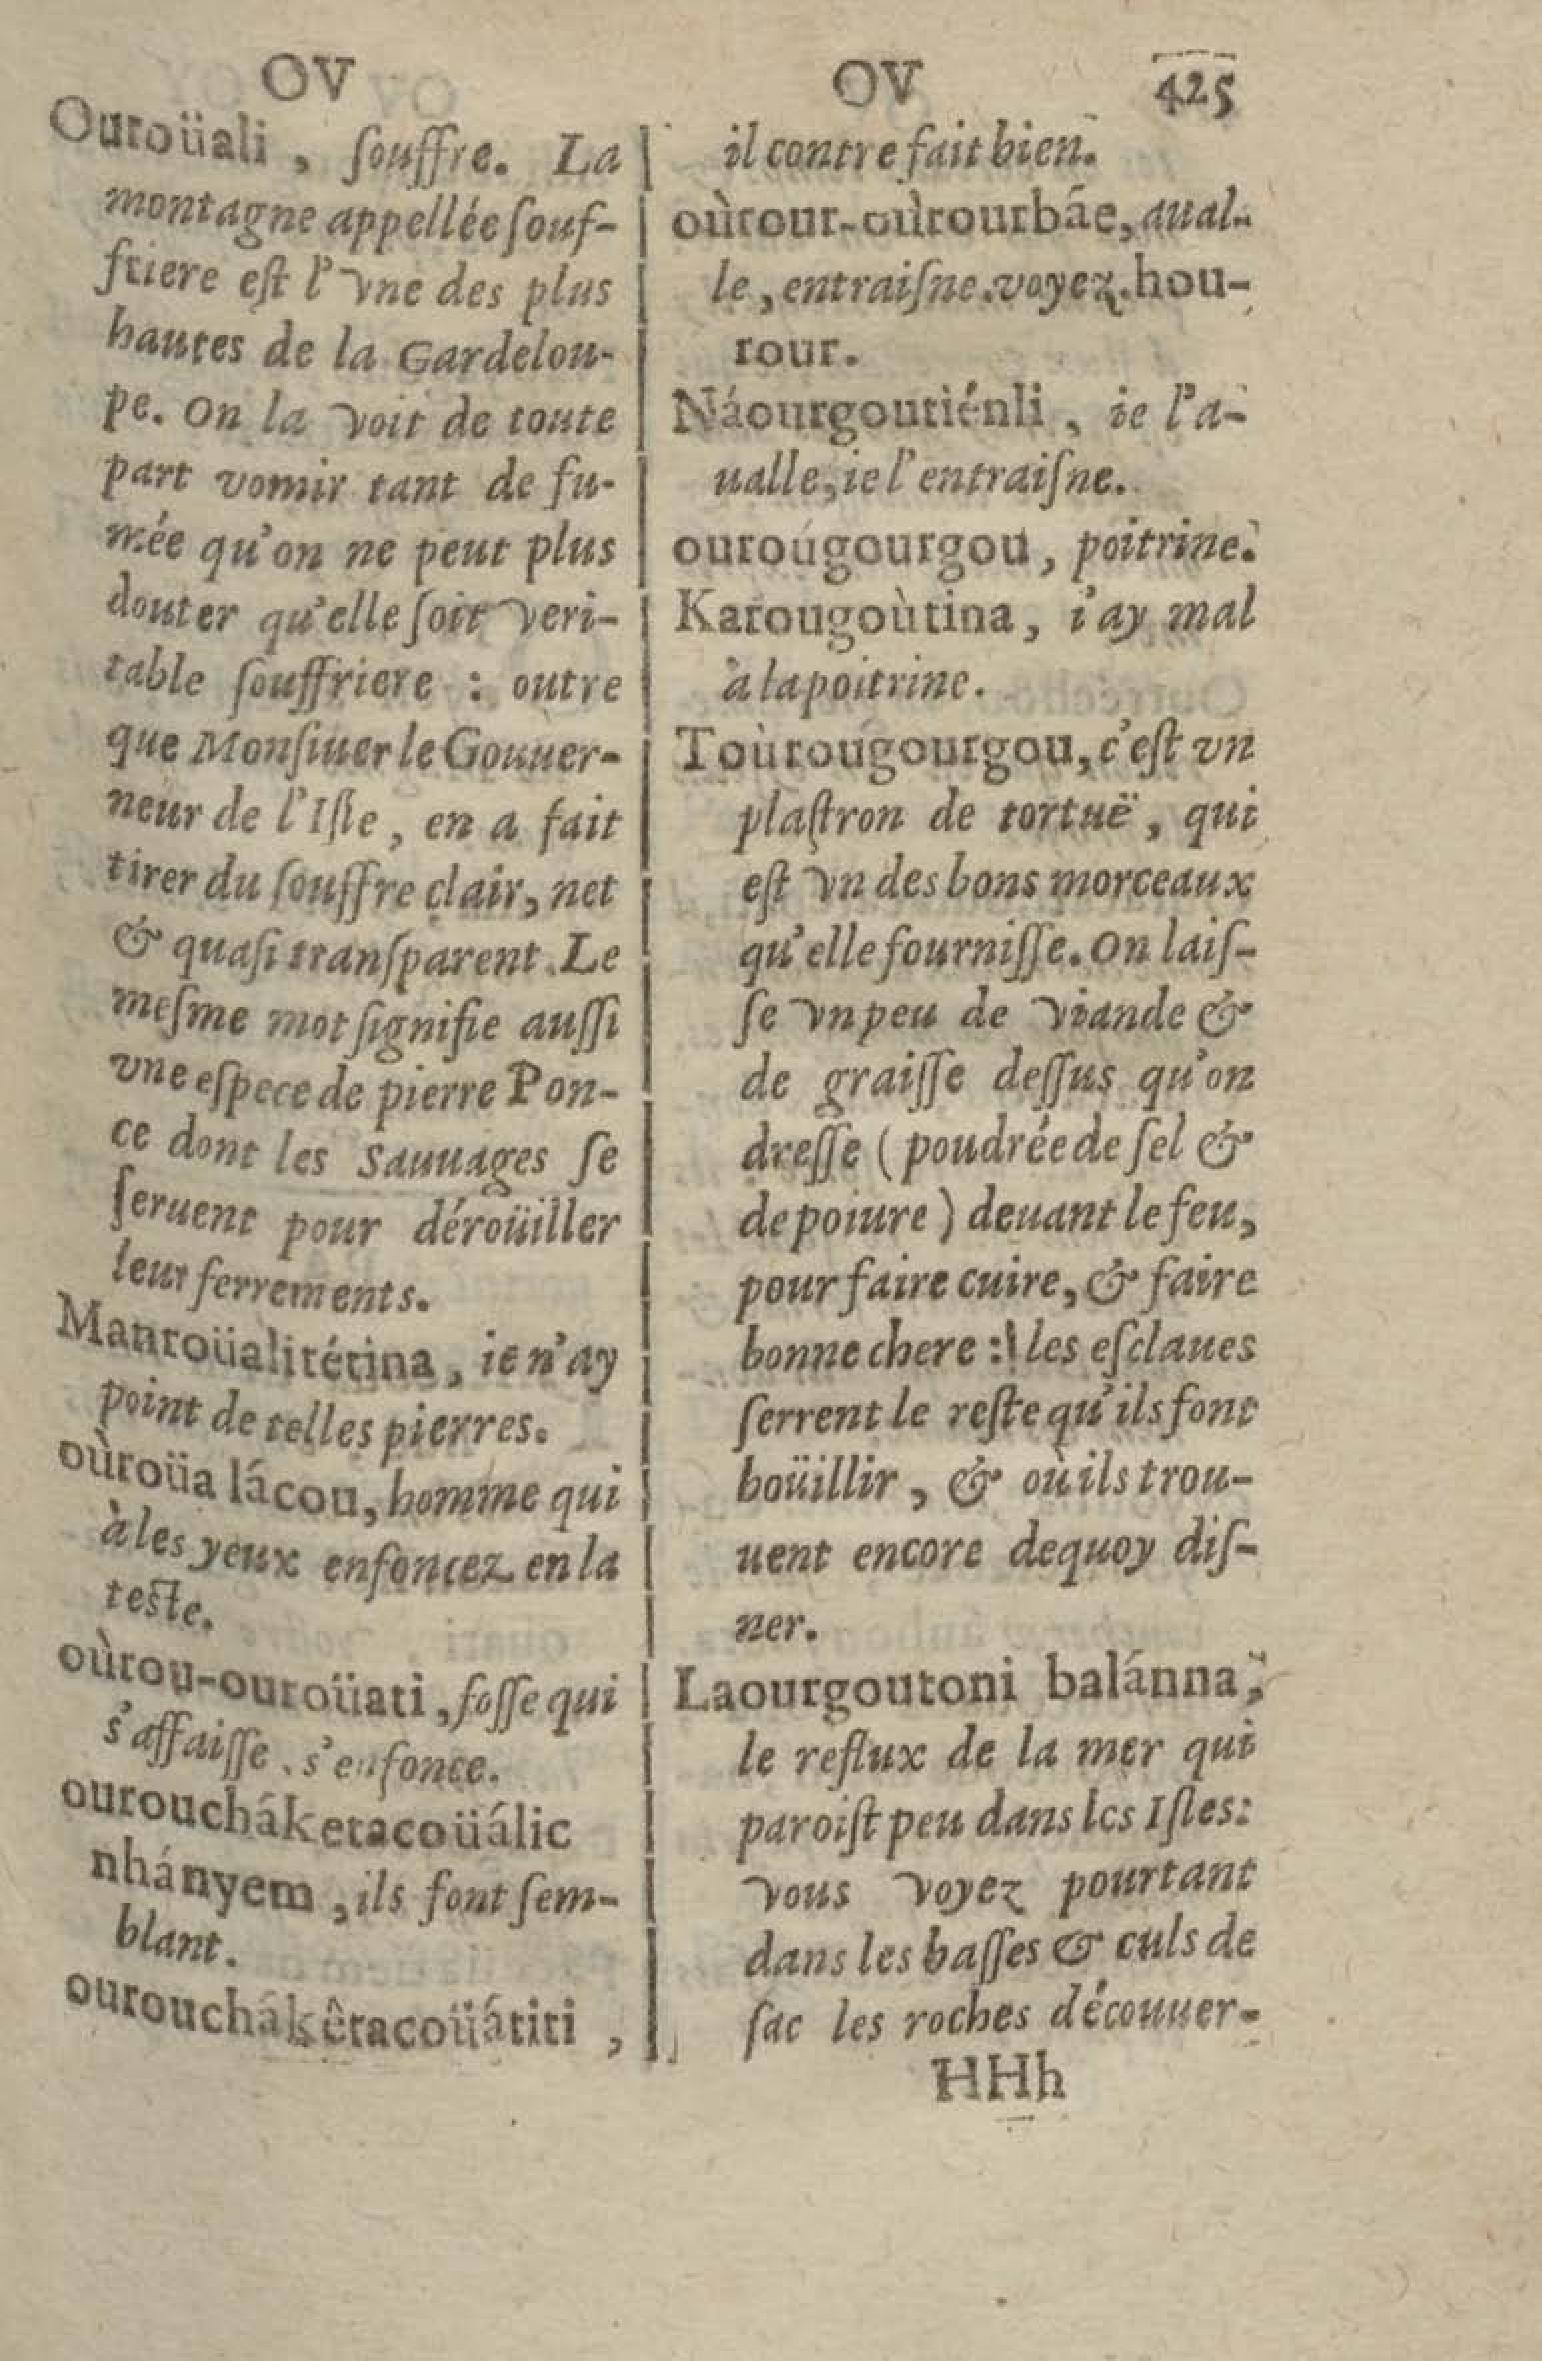 OV
Ouroüali, ſouffre. La
montagne appellée ſouf-
friere eſt l'vne des plus
hautes de la Gardelou-
pe. On la voit de toute
part vomir tant de fu-
mée qu'on ne peut plus
douter qu'elle ſoit veri-
table ſouffriere : outre
que Monſiuer le Gouuer-
neur de l'Iſle, en a fait
tirer du ſouffre clair, net
& quaſi tranſparent. Le
meſme mot ſignifie auſſi
vne eſpece de pierre Pon-
ce dont les Sauuages ſe
ſeruent pour déroüiller
leur ferrements.
Manroüalitétina, ie n'ay
point de telles pierres.
oùroüa lácou, homme qui
à les yeux enfoncez en la
teſte.
oùrou-ouroüati, foſſe qui
s'affaiſſe, s'enfonce.
ourouchák etacoüálic
nhányem, ils font ſem-
blant.
ourouchákêtacoüátiti,
OV 425
il contrefait bien.
oùrour-oùrourbáe, aual-
le, entraiſne. voyez. hou-
rour.
Náourgoutiénli, ie l'a-
ualle, ie l'entraiſne.
ourougourgou, poitrine.
Karougoùtina, i'ay mal
à la poitrine.
Toùrougourgou, c'eſt vn
plaſtron de tortuë, qui
eſt vn des bons morceaux
qu'elle fourniſſe. On laiſ-
ſe vn peu de viande &
de graiſſe deſſus qu'on
dreſſe (poudrée de ſel &
de poiure) deuant le feu,
pour faire cuire, & faire
bonne chere : les eſclaues
ſerrent le reſte qu'ils font
boüillir, & où ils trou-
uent encore dequoy diſ-
ner.
Laourgoutoni balánna,
le reflux de la mer qui
paroiſt peu dans les Iſles:
vous voyez pourtant
dans les baſſes & culs de
ſac les roches découuer-
HHh